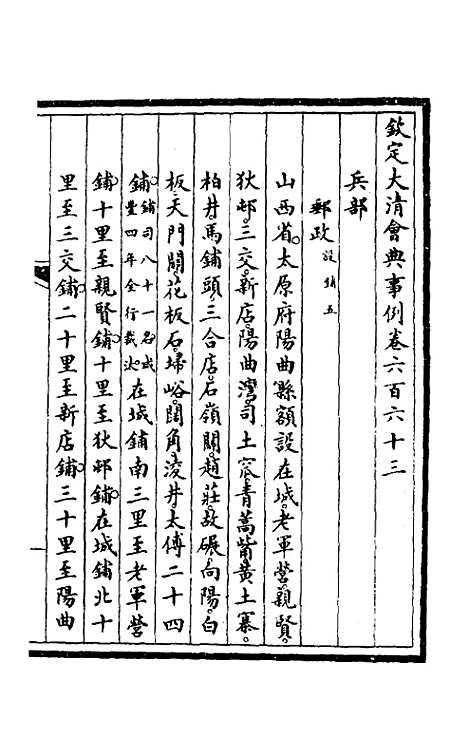 欽定大清會典事例卷六百六十三
兵部
郵政設鋪五
山西省太原府陽曲縣額設在城老軍營親賢
狄邨三交新店陽曲灣司土窊青蒿觜黃土寨
柏井馬鋪頭三合店石嶺關趙莊故碾向陽白
板天門關花板石埽峪閣角淩井太傅二十四
鋪鋪司八十一名咸豐四年全行裁汰在城鋪南三里至老軍營
鋪十里至親賢鋪十里至狄邨鋪在城鋪北十
里至三交鋪二十里至新店鋪三十里至陽曲